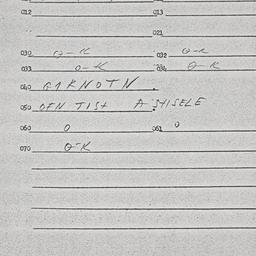 012 013
021
030 O-K 032 O-K
033 O-K 034 O-K
040 G1KNOTN
050 OFN TIST A SHSELE
060 0 061 0
070 O-K